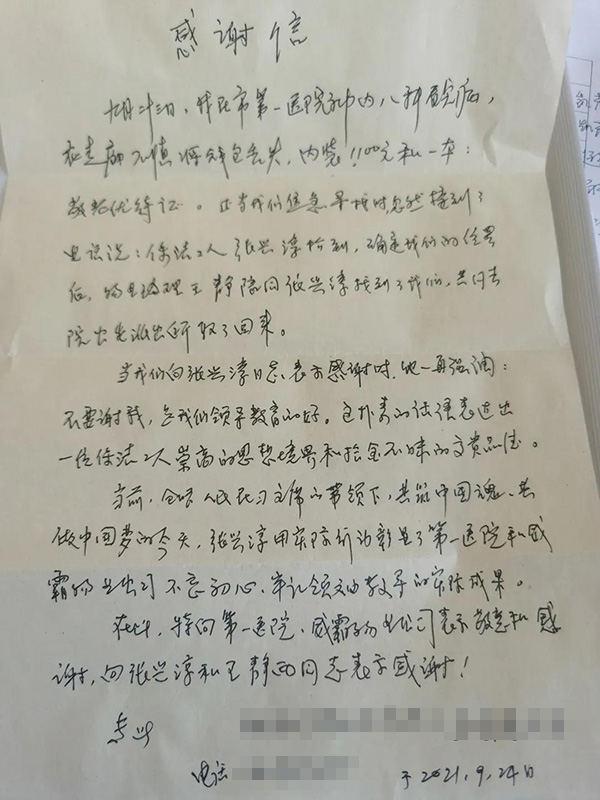 感谢信
九月二十三日,我在市第一医院 内八科看病,
在走廊不慎将钱包丢失,内装1100元和一本:
敬老优待证。正当我们焦急寻找时,忽然接到了
电话说:保洁工人张兴淳捡到,确定我们的位置
后,物业经理王静陪同张兴淳找到了我们,共同去
院出 派出所取了回来。
当我们向张兴淳同志表示感谢时,他一再强调:
不要谢我,是我们领导教育的好。这朴素的话语表达出
一位保洁工人崇高的思想境界和拾金不昧的高贵品德。
当前,全国人民在习主席的带领下,共筑中国魂、共
做中国梦的今天,张兴淳用实际行动彰显了第一医院和威
霸物业公司不忘初心,牢记领 教导的实际成果。
在此,特向第一医院、威霸物业公司表示敬意和感
谢,向张兴淳和王静 同志表示感谢!
电话 于2021.9.24日